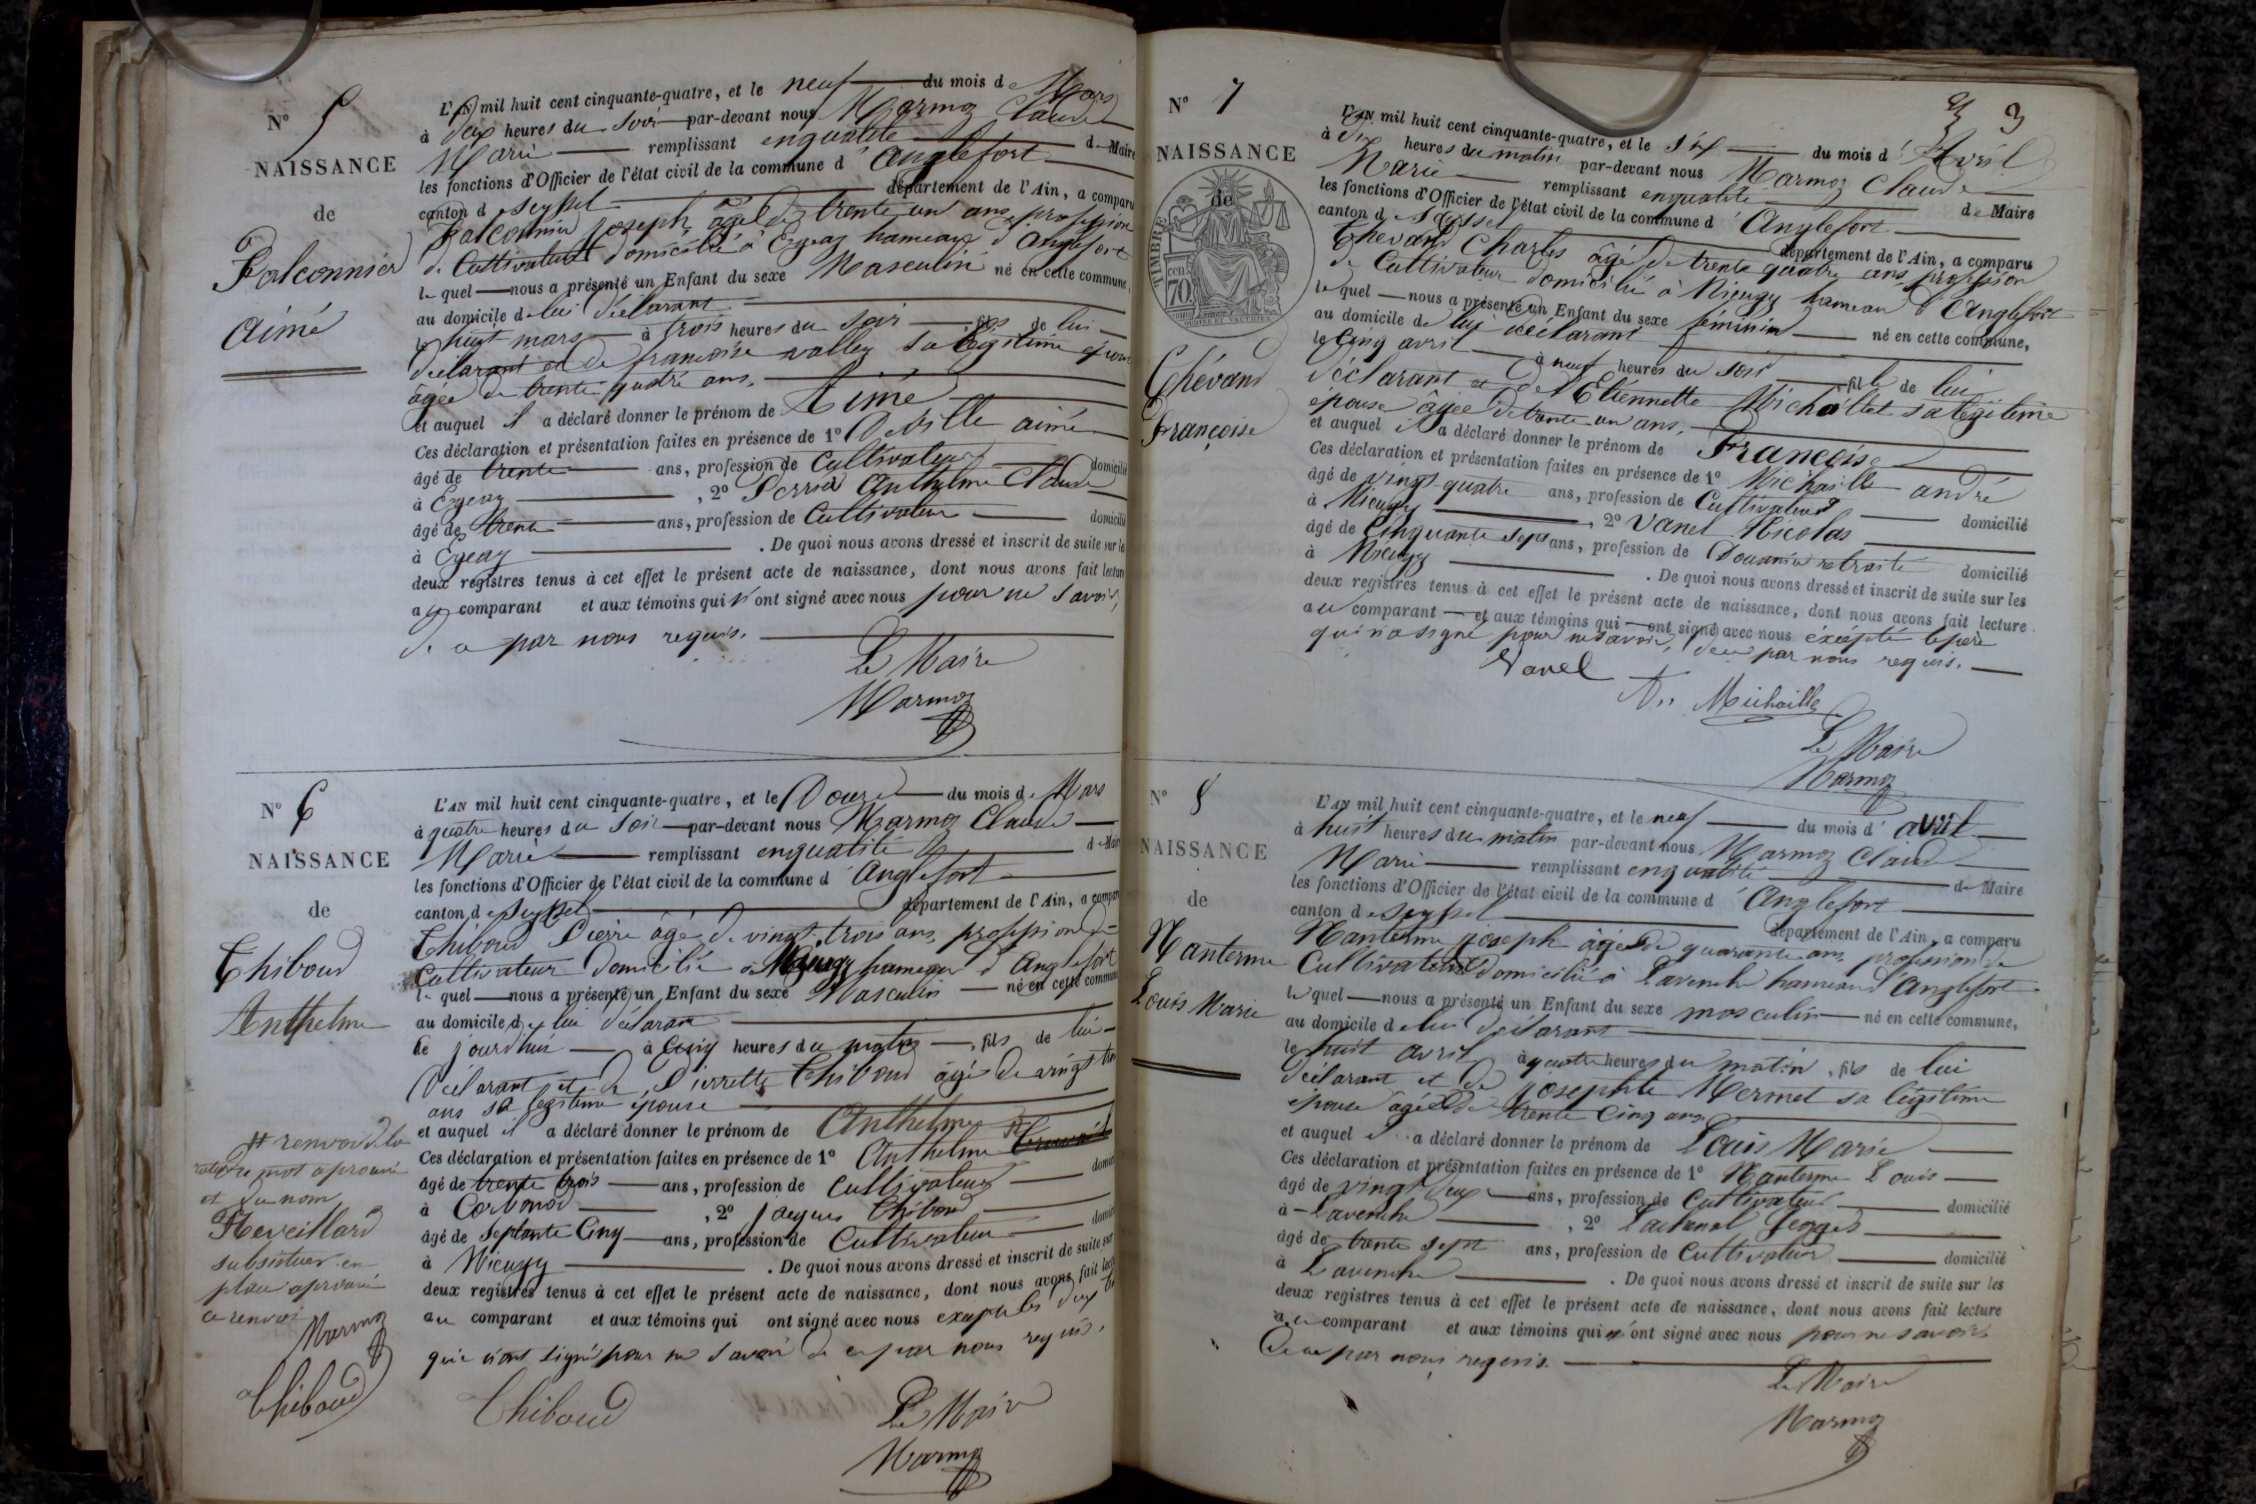 N° 5
NAISSANCE
de
Falconnier
Aimé
L'AN mil huit cent cinquante-quatre, et le neuf du mois de Mars
à deux heures du soir par-devant nous Marmoz Claude
Marie remplissant en qualité de Maire
les fonctions d'Officier de l'état civil de la commune d'Anglefort
canton de Seyssel département de l'Ain, a comparu
Falconnier Joseph, âgé de trente un ans profession
de Cultivateur domicilié à hameau d'Anglefort
lequel nous a présenté un Enfant du sexe Masculin né en cette commune,
au domicile de lui déclarant
le huit mars à trois heures du soir fils de lui
déclarant et de françoise vallez sa légitime épouse
âgée de trente quatre ans.
et auquel il a déclaré donner le prénom de Aimé
Ces déclaration et présentation faites en présence de 1° Deville aimé
âgé de trente ans, profession de Cultivateur domicilié
à , 2° Anthelme Claude
âgé de trente ans, profession de Cultivateur domicilié
à . De quoi nous avons dressé et inscrit de suite sur les
deux registres tenus à cet effet le présent acte de naissance, dont nous avons fait lecture
au comparant et aux témoins qui n'ont signé avec nous pour ne savoir,
de ce par nous requis.
Le Maire
Marmoz
N° 6
NAISSANCE
de
Thiboud
Anthelme
L'AN mil huit cent cinquante-quatre, et le Douze du mois de Mars
à quatre heures du soir par-devant nous Marmoz Claude
Marie remplissant en qualité de Maire
les fonctions d'Officier de l'état civil de la commune d'Anglefort
canton de Seyssel département de l'Ain, a comparu
Thiboud Pierre âgé de vingt trois ans, profession de
Cultivateur domicilié à hameau d'Anglefort
lequel nous a présenté un Enfant du sexe Masculin né en cette commune
au domicile de lui déclarant
le jourdhui à Cinq heures du matin, fils de lui
Déclarant et de Pierrette Thiboud âgée de vingt trois
ans sa légitime épouse
et auquel il a déclaré donner le prénom de Anthelme
Ces déclaration et présentation faites en présence de 1° Anthelme
âgé de trente trois ans, profession de Cultivateur
à Corbonod, 2° Jacques Thiboud
âgé de Septante Cinq ans, profession de Cultivateur
à Mieugy . De quoi nous avons dressé et inscrit de suite sur
deux registres tenus à cet effet le présent acte de naissance, dont nous avons fait lecture
au comparant et aux témoins qui ont signé avec nous
qui n'ont signé pour ne savoir de ce par nous requis.
renvoi de la
mot aprouvé
et du nom
Reveillard
subsistuer en
place aprouvé
ce renvoi
Marmoz
Thiboud
Thiboud
Le Maire
Marmoz
3
N° 7
NAISSANCE
de
TIMBRE
70
Chévand
Françoise
L'AN mil huit cent cinquante-quatre, et le six du mois d'Avril
à dix heures du matin par-devant nous Marmoz Claude
Marie remplissant en qualité de Maire
les fonctions d'Officier de l'état civil de la commune d'Anglefort
canton de Seyssel département de l'Ain, a comparu
Chevand Charles âgé de trente quatre ans profession
de Cultivateur domicilié à Mieugy hameau d'Anglefort
lequel nous a présenté un Enfant du sexe féminin né en cette commune,
au domicile de lui déclarant
le Cinq avril à neuf heures du soir fille de lui
déclarant et de Etiennette Michallet sa légitime
épouse âgée de trente un ans,
et auquel il a déclaré donner le prénom de Françoise
Ces déclaration et présentation faites en présence de 1° Michaille andré
âgé de vingt quatre ans, profession de Cultivateur domicilié
à Mieugy, 2° Vanel Nicolas
âgé de Cinquante sept ans, profession de Douanier retraité domicilié
à Mieugy . De quoi nous avons dressé et inscrit de suite sur les
deux registres tenus à cet effet le présent acte de naissance, dont nous avons fait lecture
au comparant et aux témoins qui ont signé avec nous excepté le père
qui n'a signé pour ne savoir, de ce par nous requis.
Vanel
An Michaille
Le Maire
Marmoz
N° 8
NAISSANCE
de
Nanterme
Louis Marie
L'AN mil huit cent cinquante-quatre, et le neuf du mois d'avril
à huit heures du matin par-devant nous Marmoz Claude
Marie remplissant en qualité de Maire
les fonctions d'Officier de l'état civil de la commune d'Anglefort
canton de Seyssel département de l'Ain, a comparu
Nanterme Joseph âgé de quarante ans profession de
Cultivateur domicilié à Lavenche hameau d'Anglefort
lequel nous a présenté un Enfant du sexe masculin né en cette commune,
au domicile de lui déclarant
le huit avril à quatre heures du matin, fils de lui
déclarant et de Josephte Mermet sa légitime
épouse âgée de trente Cinq ans
et auquel il a déclaré donner le prénom de Louis Marie
Ces déclaration et présentation faites en présence de 1° Nanterme Louis
âgé de vingt deux ans, profession de Cultivateur domicilié
à Lavenche, 2°
âgé de trente sept ans, profession de Cultivateur domicilié
à Lavenche . De quoi nous avons dressé et inscrit de suite sur les
deux registres tenus à cet effet le présent acte de naissance, dont nous avons fait lecture
au comparant et aux témoins qui n'ont signé avec nous pour ne savoir
de ce par nous requis.
Le Maire
Marmoz